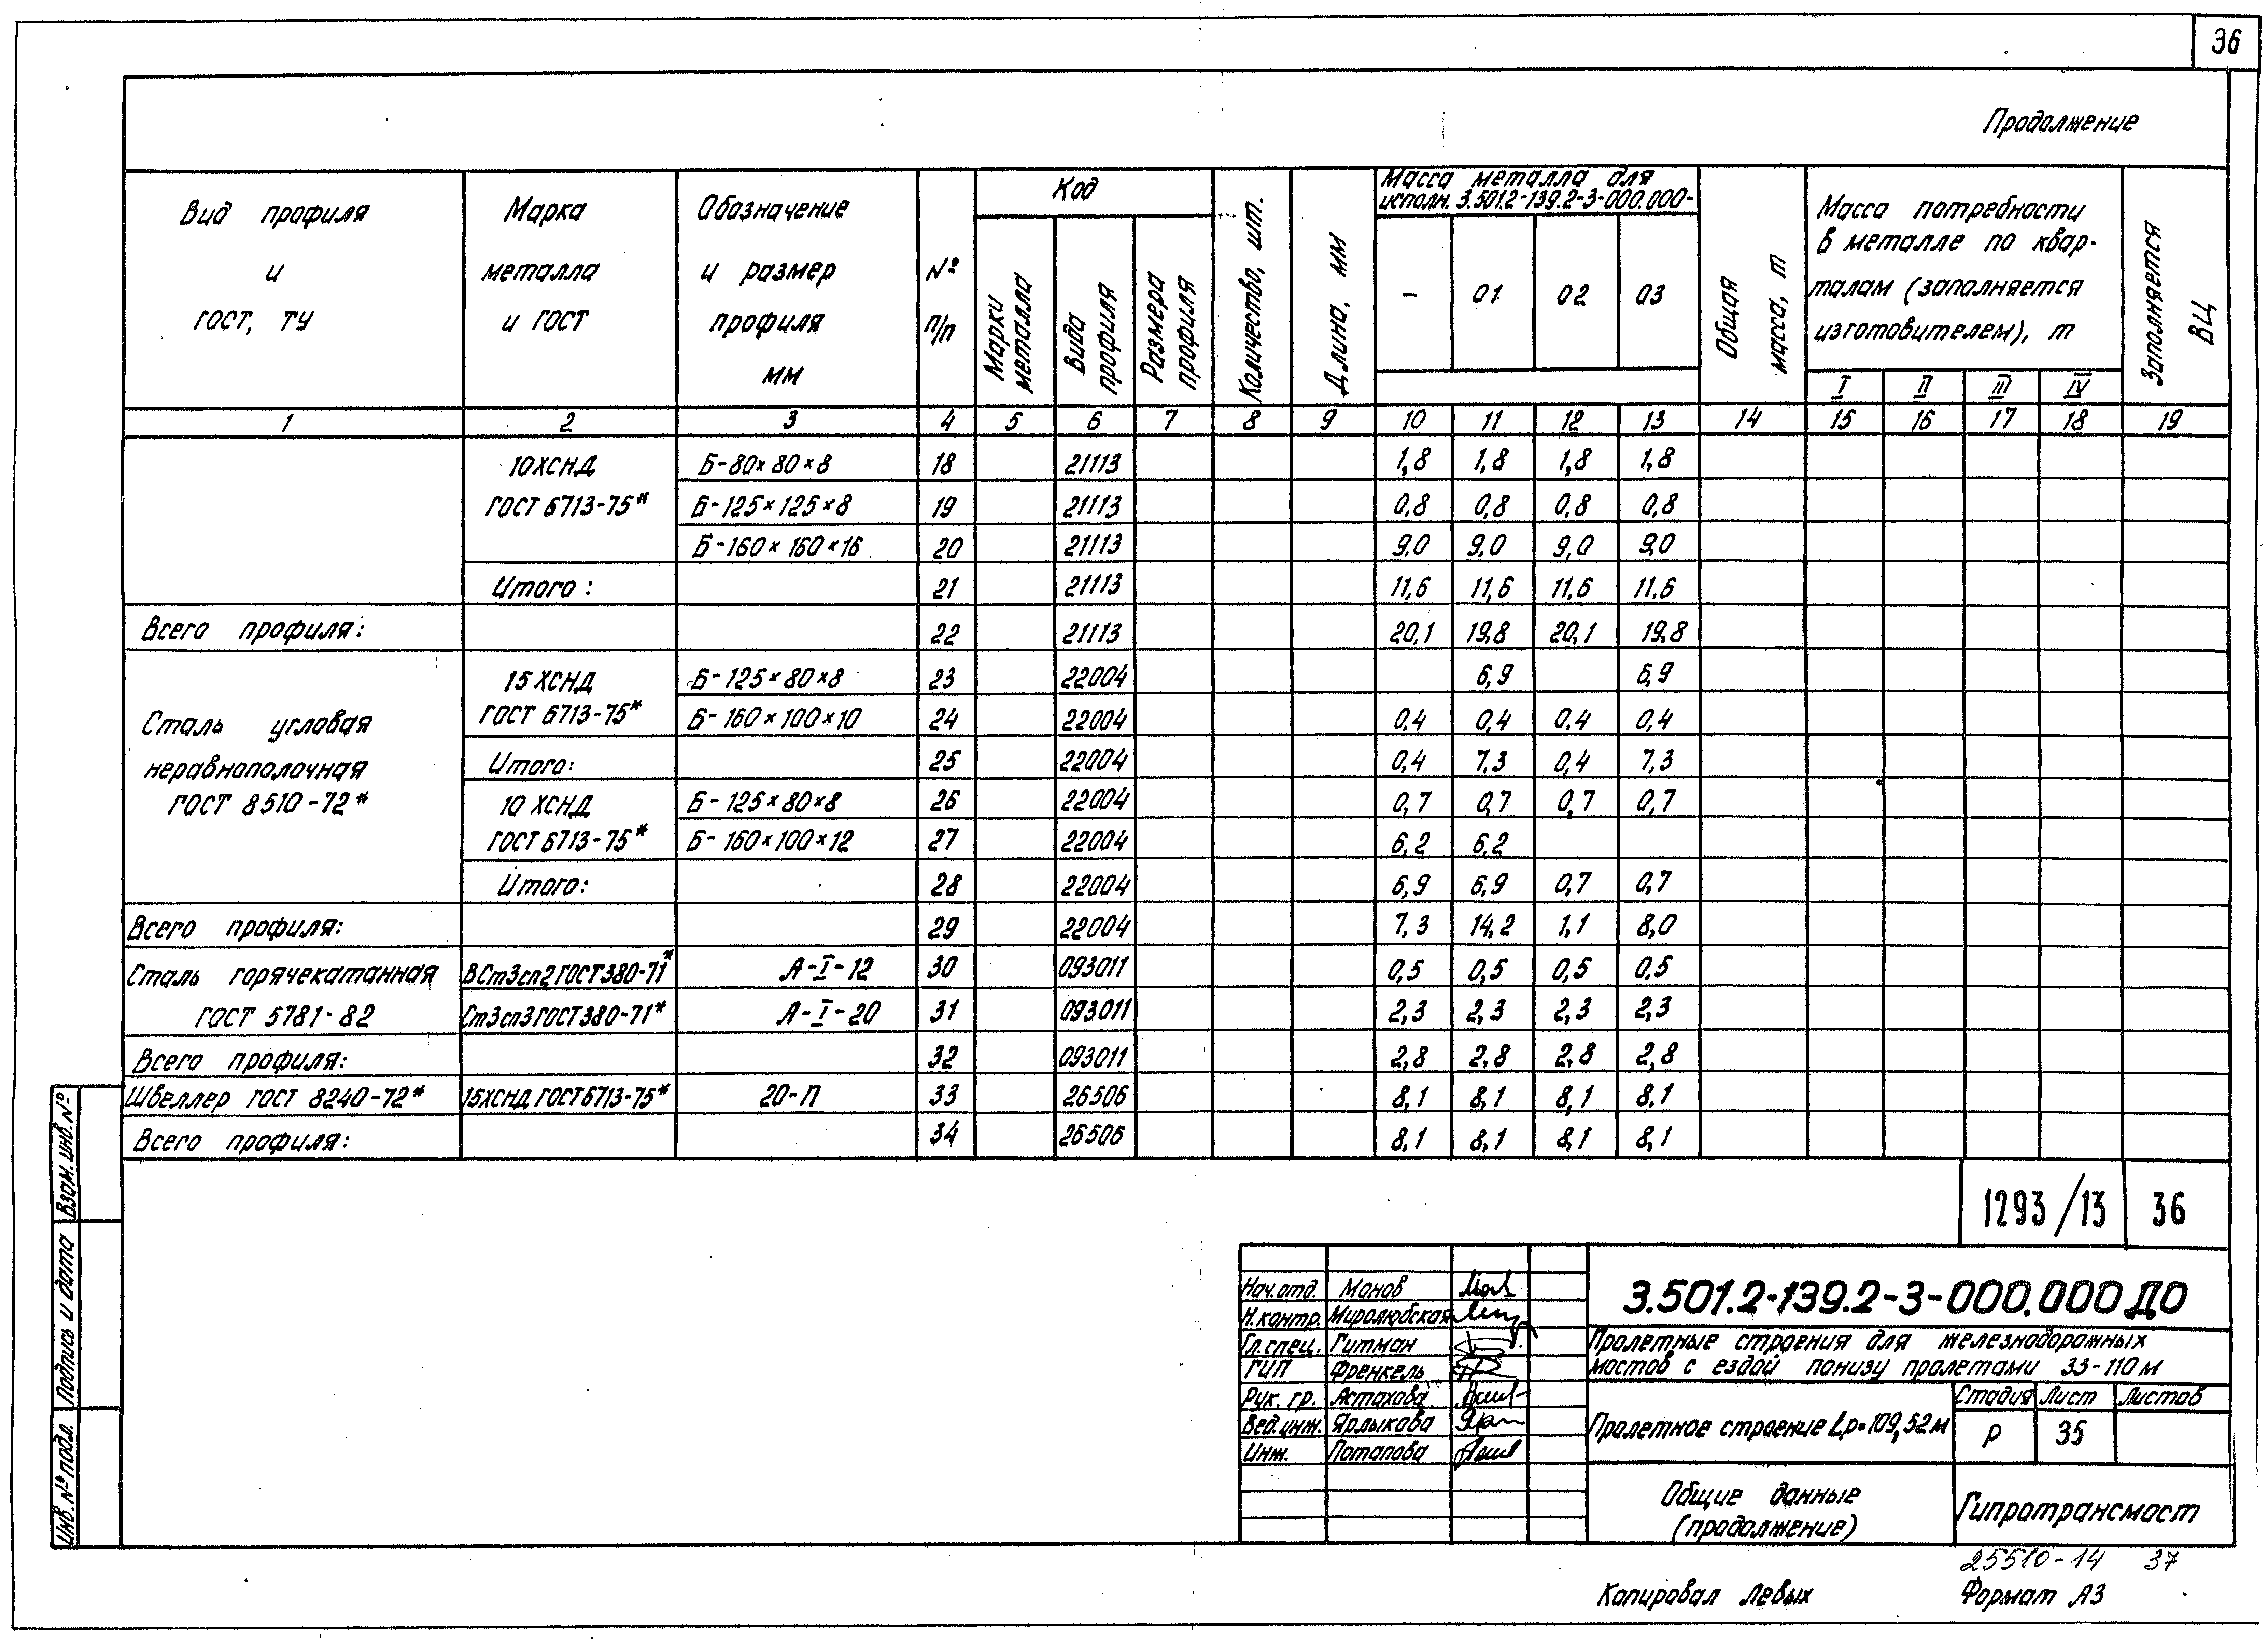 36
Продолжение
Вид профиля и ГОСТ, ТУ
Марка металла и ГОСТ
Обозначение и размер профиля мм
№ п/п
Код
Марки металла
Вида профиля
Размера профиля
Количество, шт.
Длина, мм
Масса металла для исполн. 3.501.2-139.2-3-000.000-
– 01 02 03
Общая масса, т
Масса потребности в металле по кварталам (заполняется изготовителем), т
I II III IV
Заполняется ВЦ
1 2 3 4 5 6 7 8 9 10 11 12 13 14 15 16 17 18 19
10ХСНД Б-80×80×8 18 21113 1,8 1,8 1,8 1,8
ГОСТ 6713-75* Б-125×125×8 19 21113 0,8 0,8 0,8 0,8
Б-160×160×16 20 21113 9,0 9,0 9,0 9,0
Итого: 21 21113 11,6 11,6 11,6 11.6
Всего профиля: 22 21113 20,1 19,8 20,1 19,8
15 ХСНД Б-125×80×8 23 22004 6,9 6,9
Сталь угловая ГОСТ 6713-75* Б-160×100×10 24 22004 0,4 0,4 0,4 0,4
неравнополочная Итого: 25 22004 0,4 7,3 0,4 7,3
ГОСТ 8510-72* 10 ХСНД Б-125×80×8 26 22004 0,7 0,7 0,7 0,7
ГОСТ 6713-75* Б-160×100×12 27 22004 6,2 6,2
Итого: 28 22004 6,9 6,9 0,7 0,7
Всего профиля: 29 22004 7,3 14,2 1,1 8,0
Сталь горячекатанная ВСт3сп2 ГОСТ 380-71* А-I-12 30 093011 0,5 0,5 0,5 0,5
ГОСТ 5781-82 Ст3сп3 ГОСТ 380-71* А-I-20 31 093011 2,3 2,3 2,3 2,3
Всего профиля: 32 093011 2,8 2,8 2,8 2,8
Швеллер ГОСТ 8240-72* 15ХСНД ГОСТ 6713-75* 20-П 33 26506 8,1 8,1 8,1 8,1
Всего профиля: 34 26506 8,1 8,1 8,1 8,1
Взам. инв. №
Подпись и дата
Инв. № подл.
1293/13 36
Нач. отд. Монов
Н. контр. Миролюбская
Гл. спец. Гитман
ГИП Френкель
Рук. гр. Астахова
Вед. инж. Ярлыкова
Инж. Потапова
3.501.2-139.2-3-000.000 ДО
Пролетные строения для железнодорожных
мостов с ездой понизу пролетами 33-110 м
Пролетное строение Lр=109,52 м
Стадия Лист Листов
Р 35
Общие данные
(продолжение)
Гипротрансмост
25510-14 37
Копировал Левых Формат А3